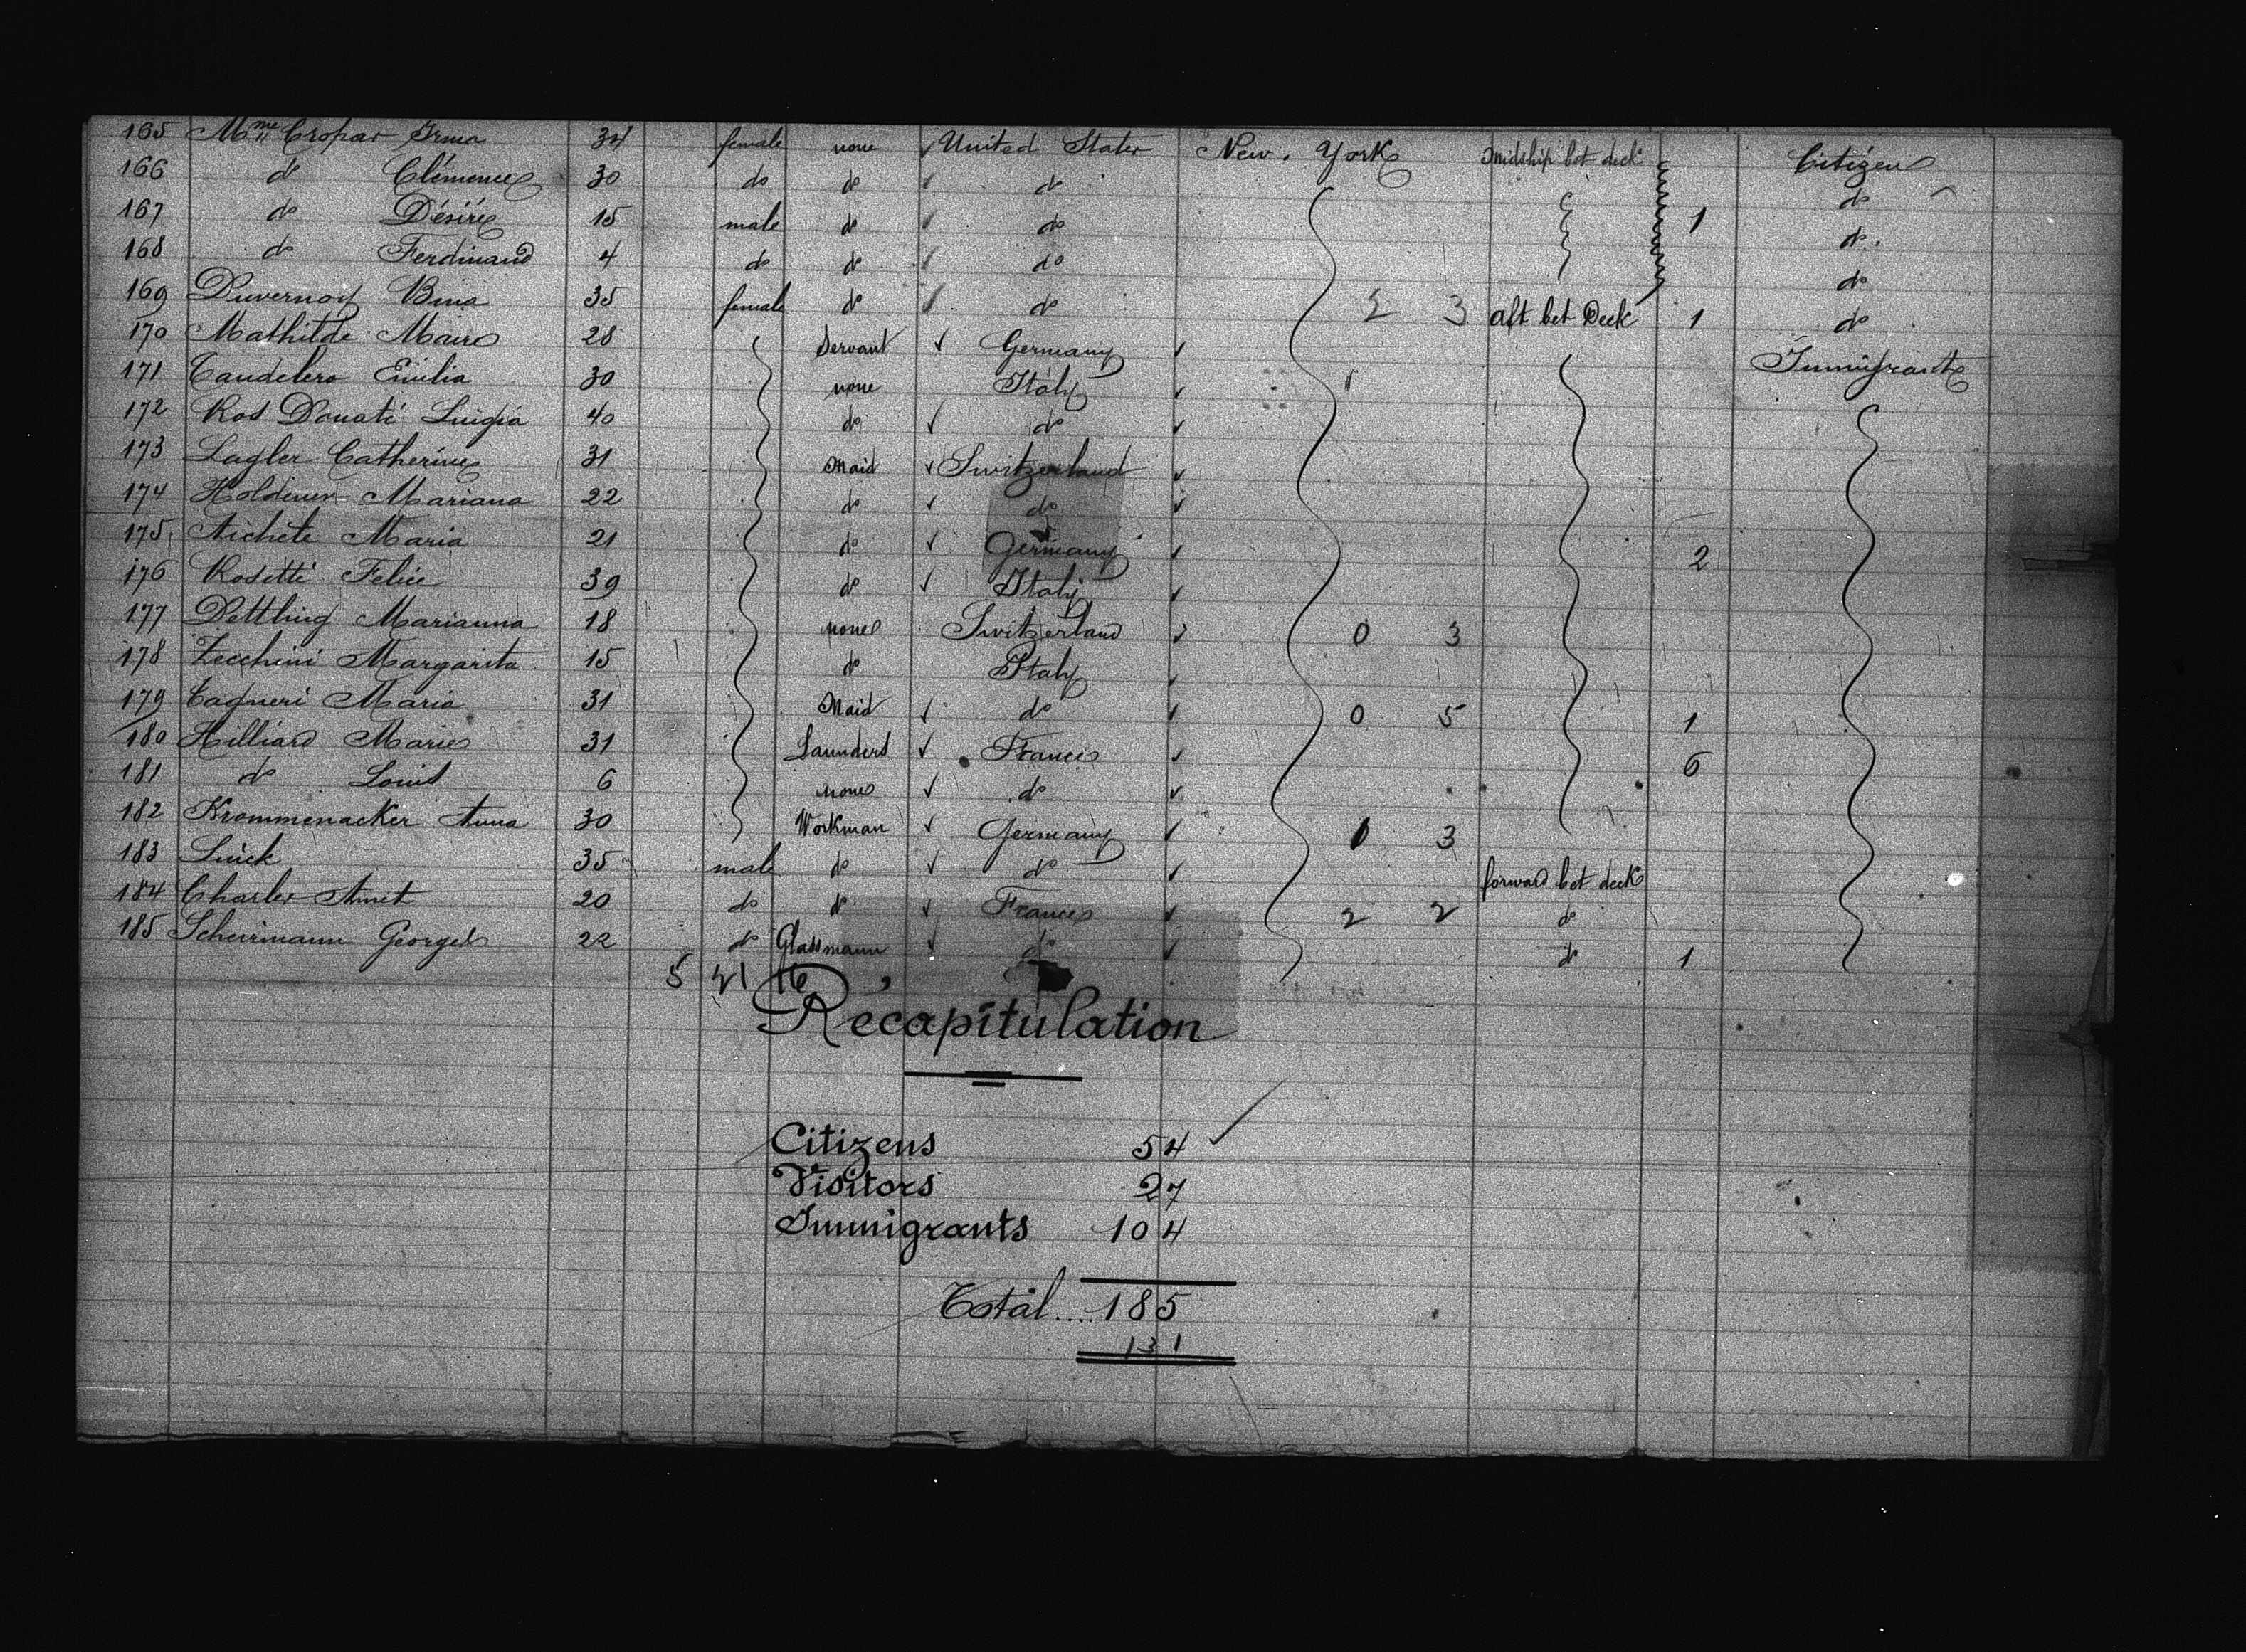 165 Mme Cropar Irma 34 female none United States New York midship bet deck Citizen
166 do Clémence 30 do do do do
167 do Désiré 15 male do do 1 do
168 do Ferdinand 4 do do do do
169 Duvernoy Bina 35 female do do 2 3 aft bet Deck 1 do
170 Mathilde Maire 28 Servant Germany Immigrant
171 Candelero Emilia 30 none Italy 1
172 Ros Donati Luigia 40 do do
173 Lagler Catherine 31 Maid Switzerland
174 Holdiner Mariana 22 do do
175 Aichele Maria 21 do Germany 2
176 Rosetti Felice 39 do Italy
177 Dettling Marianna 18 none Switzerland 0 3
178 Zecchini Margarita 15 do Italy
179 Cagneri Maria 31 Maid do 0 5 1
180 Hilliard Marie 31 Launders France 6
181 do Louis 6 none do
182 Krommenacker Anna 30 Workman Germany 1 3
183 Luick 35 male do do forward bet deck
184 Charles Amet 20 do do France 2 2 do
185 Scheirmann Georges 22 do Glassmann do do 1
5 21 16
Recapitulation
Citizens 54
Visitors 27
Immigrants 104
Total .... 185
131